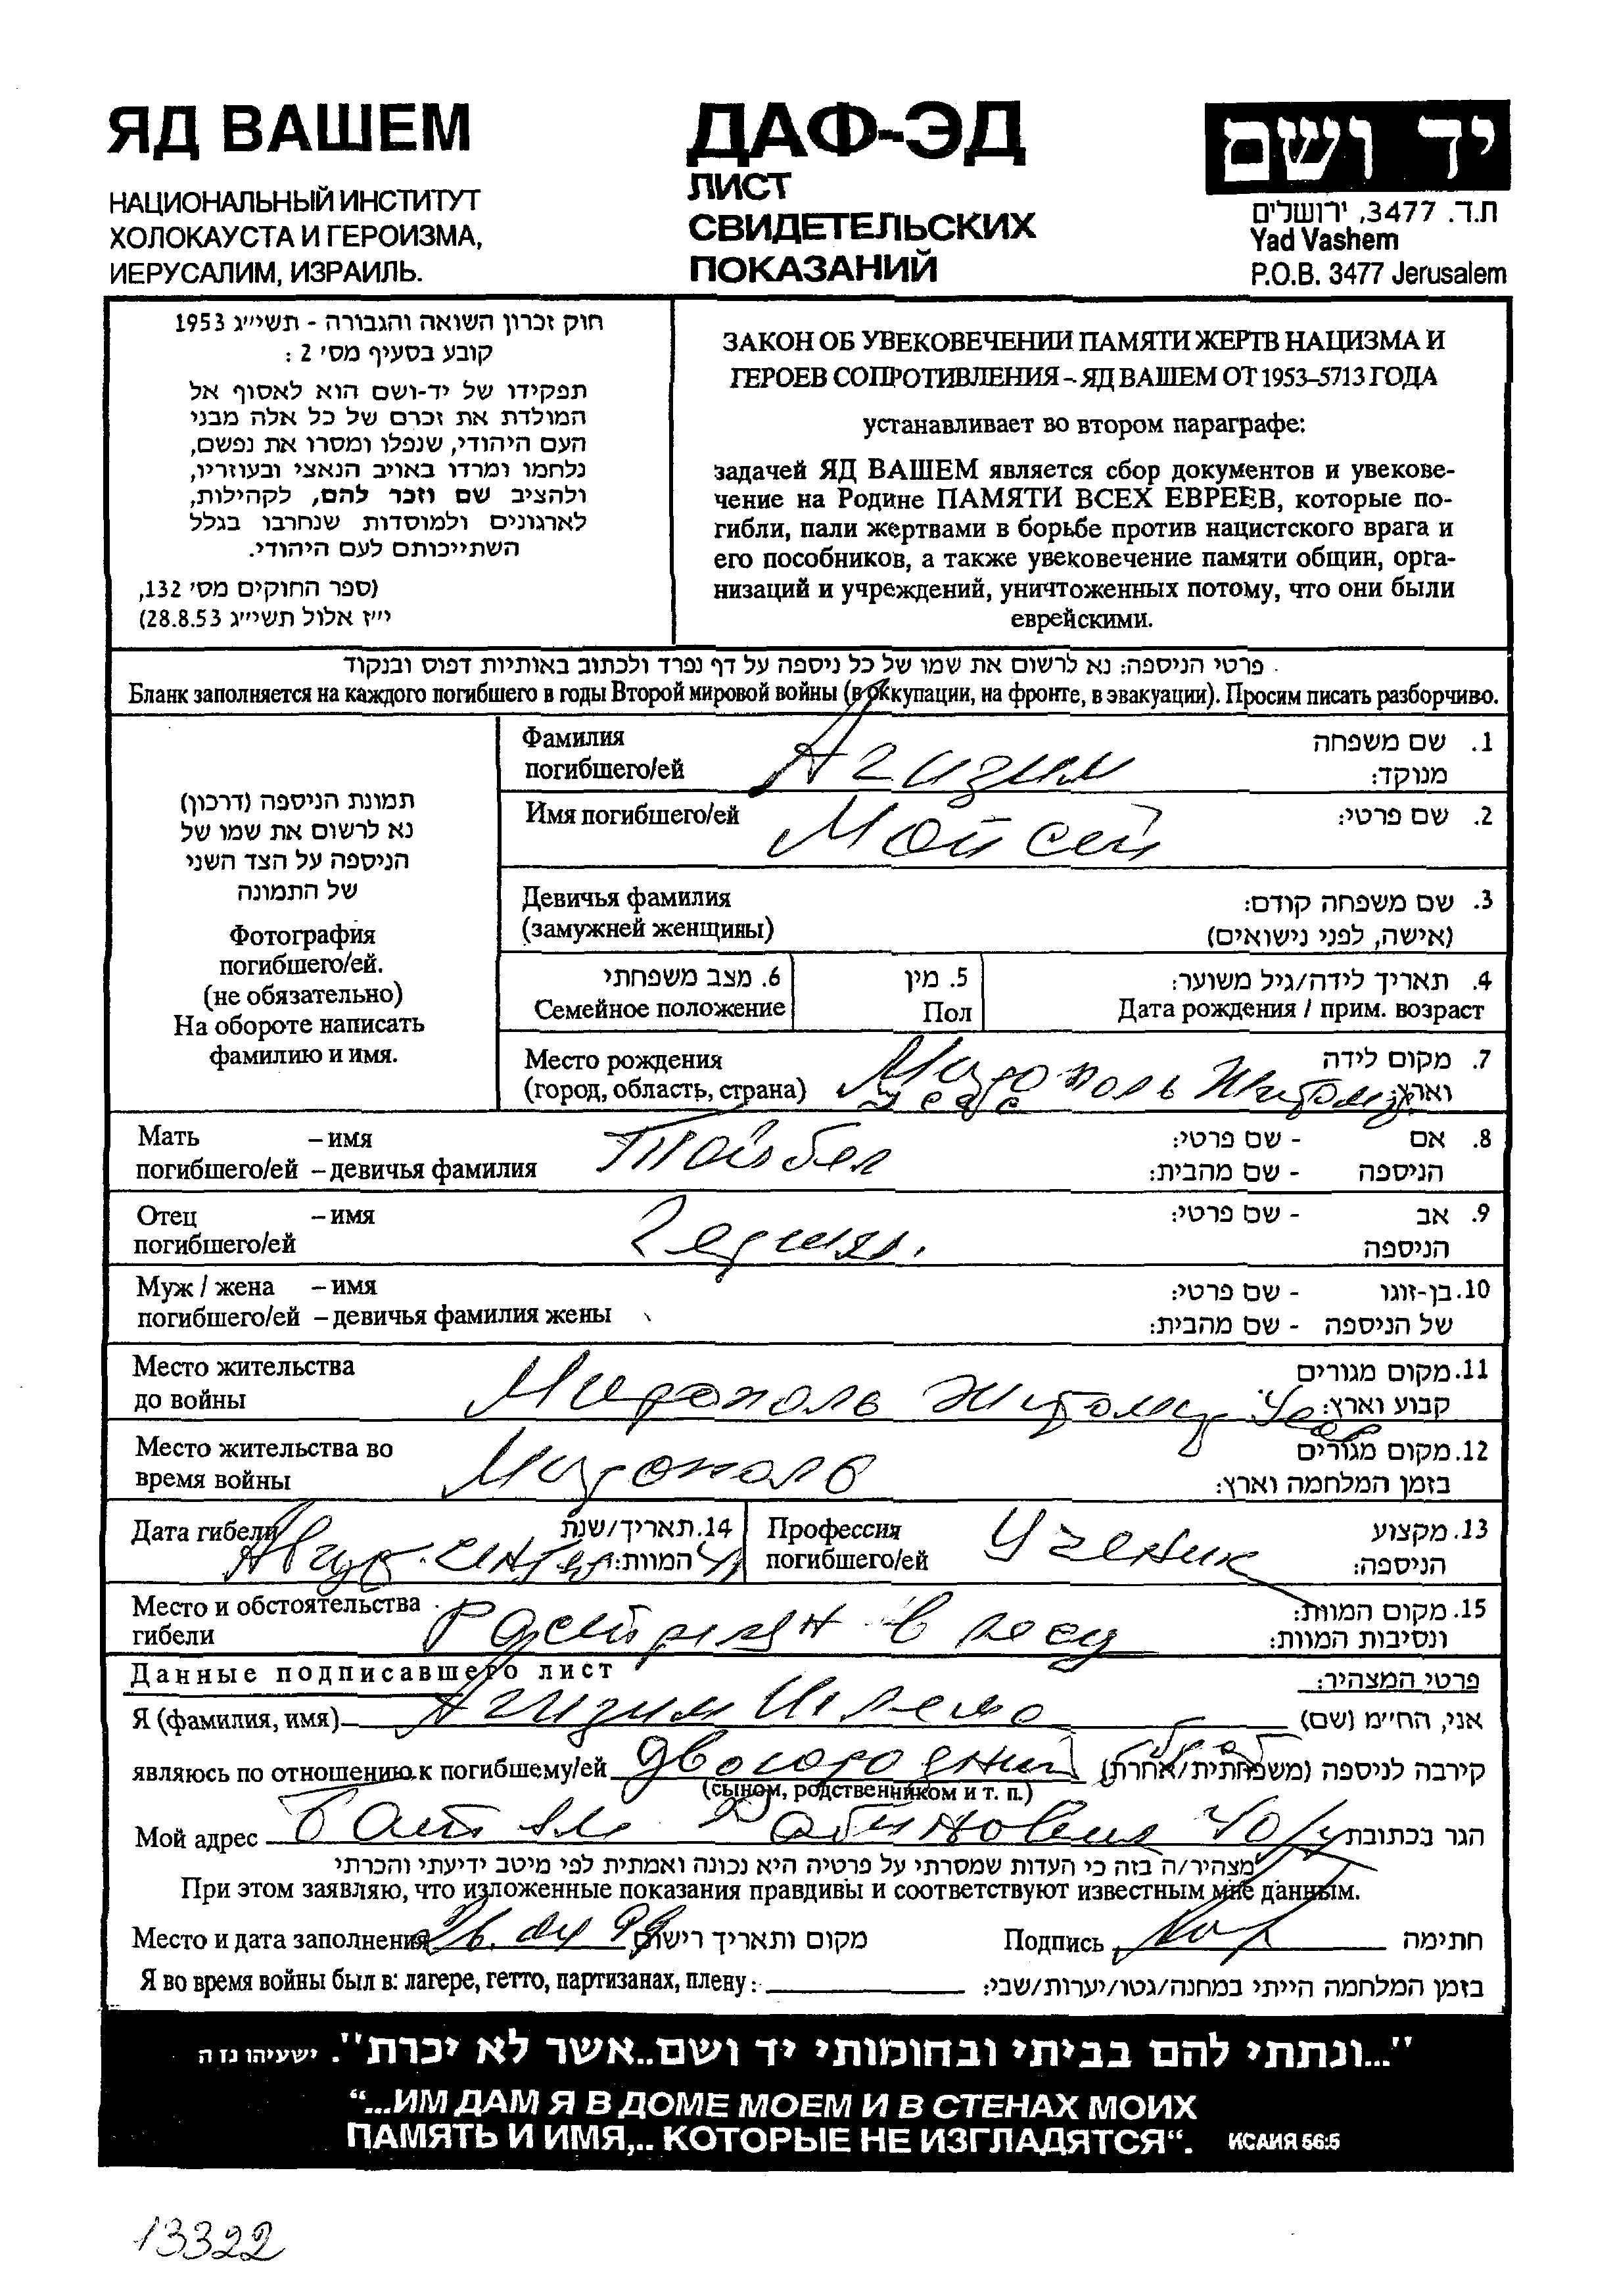 ЯД ВАШЕМ
НАЦИОНАЛЬНЫЙ ИНСТИТУТ
ХОЛОКАУСТА И ГЕРОИЗМА,
ИЕРУСАЛИМ, ИЗРАИЛЬ.
ДАФ-ЭД
ЛИСТ
СВИДЕТЕЛЬСКИХ
ПОКАЗАНИЙ
יד ושם
ת.ד. 3477, ירושלים
Yad Vashem
P.O.B. 3477 Jerusalem
חוק זכרון השואה והגבורה - תשי״ג 1953
קובע בסעיף מס׳ 2 :
תפקידו של יד-ושם הוא לאסוף אל
המולדת את זכרם של כל אלה מבני
העם היהודי, שנפלו ומסרו את נפשם,
נלחמו ומרדו באויב הנאצי ובעוזריו,
ולהציב שם וזכר להם, לקהילות,
לארגונים ולמוסדות שנחרבו בגלל
השתייכותם לעם היהודי.
(ספר החוקים מס׳ 132,
י״ז אלול תשי״ג 28.8.53)
ЗАКОН ОБ УВЕКОВЕЧЕНИИ ПАМЯТИ ЖЕРТВ НАЦИЗМА И
ГЕРОЕВ СОПРОТИВЛЕНИЯ – ЯД ВАШЕМ ОТ 1953–5713 ГОДА
устанавливает во втором параграфе:
задачей ЯД ВАШЕМ является сбор документов и увекове-
чение на Родине ПАМЯТИ ВСЕХ ЕВРЕЕВ, которые по-
гибли, пали жертвами в борьбе против нацистского врага и
его пособников, а также увековечение памяти общин, орга-
низаций и учреждений, уничтоженных потому, что они были
еврейскими.
פרטי הניספה: נא לרשום את שמו של כל ניספה על דף נפרד ולכתוב באותיות דפוס ובנקוד
Бланк заполняется на каждого погибшего в годы Второй мировой войны (в оккупации, на фронте, в эвакуации). Просим писать разборчиво.
תמונת הניספה (דרכון)
נא לרשום את שמו של
הניספה על הצד השני
של התמונה
Фотография
погибшего/ей.
(не обязательно)
На обороте написать
фамилию и имя.
Фамилия Агизим 1. שם משפחה
погибшего/ей מנוקד:
Имя погибшего/ей Мойсей 2. שם פרטי:
Девичья фамилия 3. שם משפחה קודם:
(замужней женщины) (אישה, לפני נישואים)
6. מצב משפחתי 5. מין 4. תאריך לידה/גיל משוער:
Семейное положение Пол Дата рождения / прим. возраст
Место рождения Мирополь Житомир 7. מקום לידה
(город, область, страна) וארץ:
Мать – имя Тойбел 8. אם - שם פרטי:
погибшего/ей – девичья фамилия הניספה - שם מהבית:
Отец – имя 9. אב - שם פרטי:
погибшего/ей הניספה
Муж / жена – имя 10. בן-זוגו - שם פרטי:
погибшего/ей – девичья фамилия жены של הניספה - שם מהבית:
Место жительства Мирополь Житомир 11. מקום מגורים
до войны קבוע וארץ:
Место жительства во Мирополь 12. מקום מגורים
время войны בזמן המלחמה וארץ:
Дата гибели 41 14. תאריך/שנת המוות:
Профессия Ученик 13. מקצוע
погибшего/ей הניספה:
Место и обстоятельства Растрелян в лесу 15. מקום המוות:
гибели ונסיבות המוות:
Данные подписавшего лист פרטי המצהיר:
Я (фамилия, имя) Агизим אני, החי״מ (שם)
являюсь по отношению к погибшему/ей двоюродний брат קירבה לניספה (משפחתית/אחרת)
(сыном, родственником и т. п.)
Мой адрес Бат ям 40/4 הגר בכתובת
מצהיר/ה בזה כי העדות שמסרתי על פרטיה היא נכונה ואמתית לפי מיטב ידיעתי והכרתי
При этом заявляю, что изложенные показания правдивы и соответствуют известным мне данным.
Место и дата заполнения מקום ותאריך רישום Подпись חתימה
Я во время войны был в: лагере, гетто, партизанах, плену: בזמן המלחמה הייתי במחנה/גטו/יערות/שבי:
"...ונתתי להם בביתי ובחומותי יד ושם..אשר לא יכרת". ישעיהו נז ה
“...ИМ ДАМ Я В ДОМЕ МОЕМ И В СТЕНАХ МОИХ
ПАМЯТЬ И ИМЯ,.. КОТОРЫЕ НЕ ИЗГЛАДЯТСЯ“. ИСАИЯ 56:5
13322